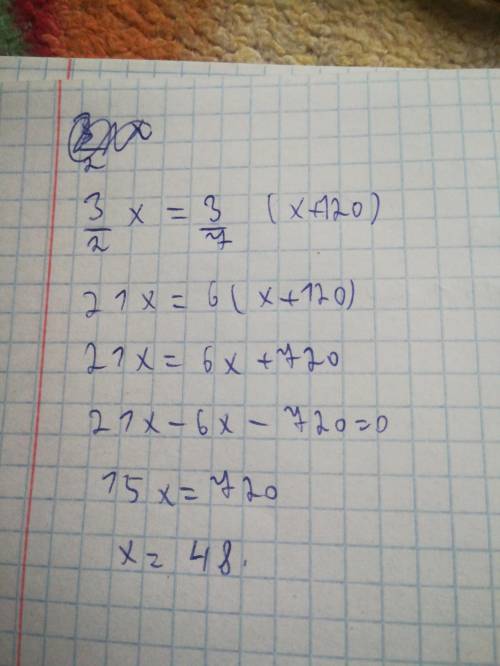 3/2 x = 3/7 (x+120)
21x = 6(x+120)
21x = 6x+720
21x-6x-720=0
15x=720
x= 48.